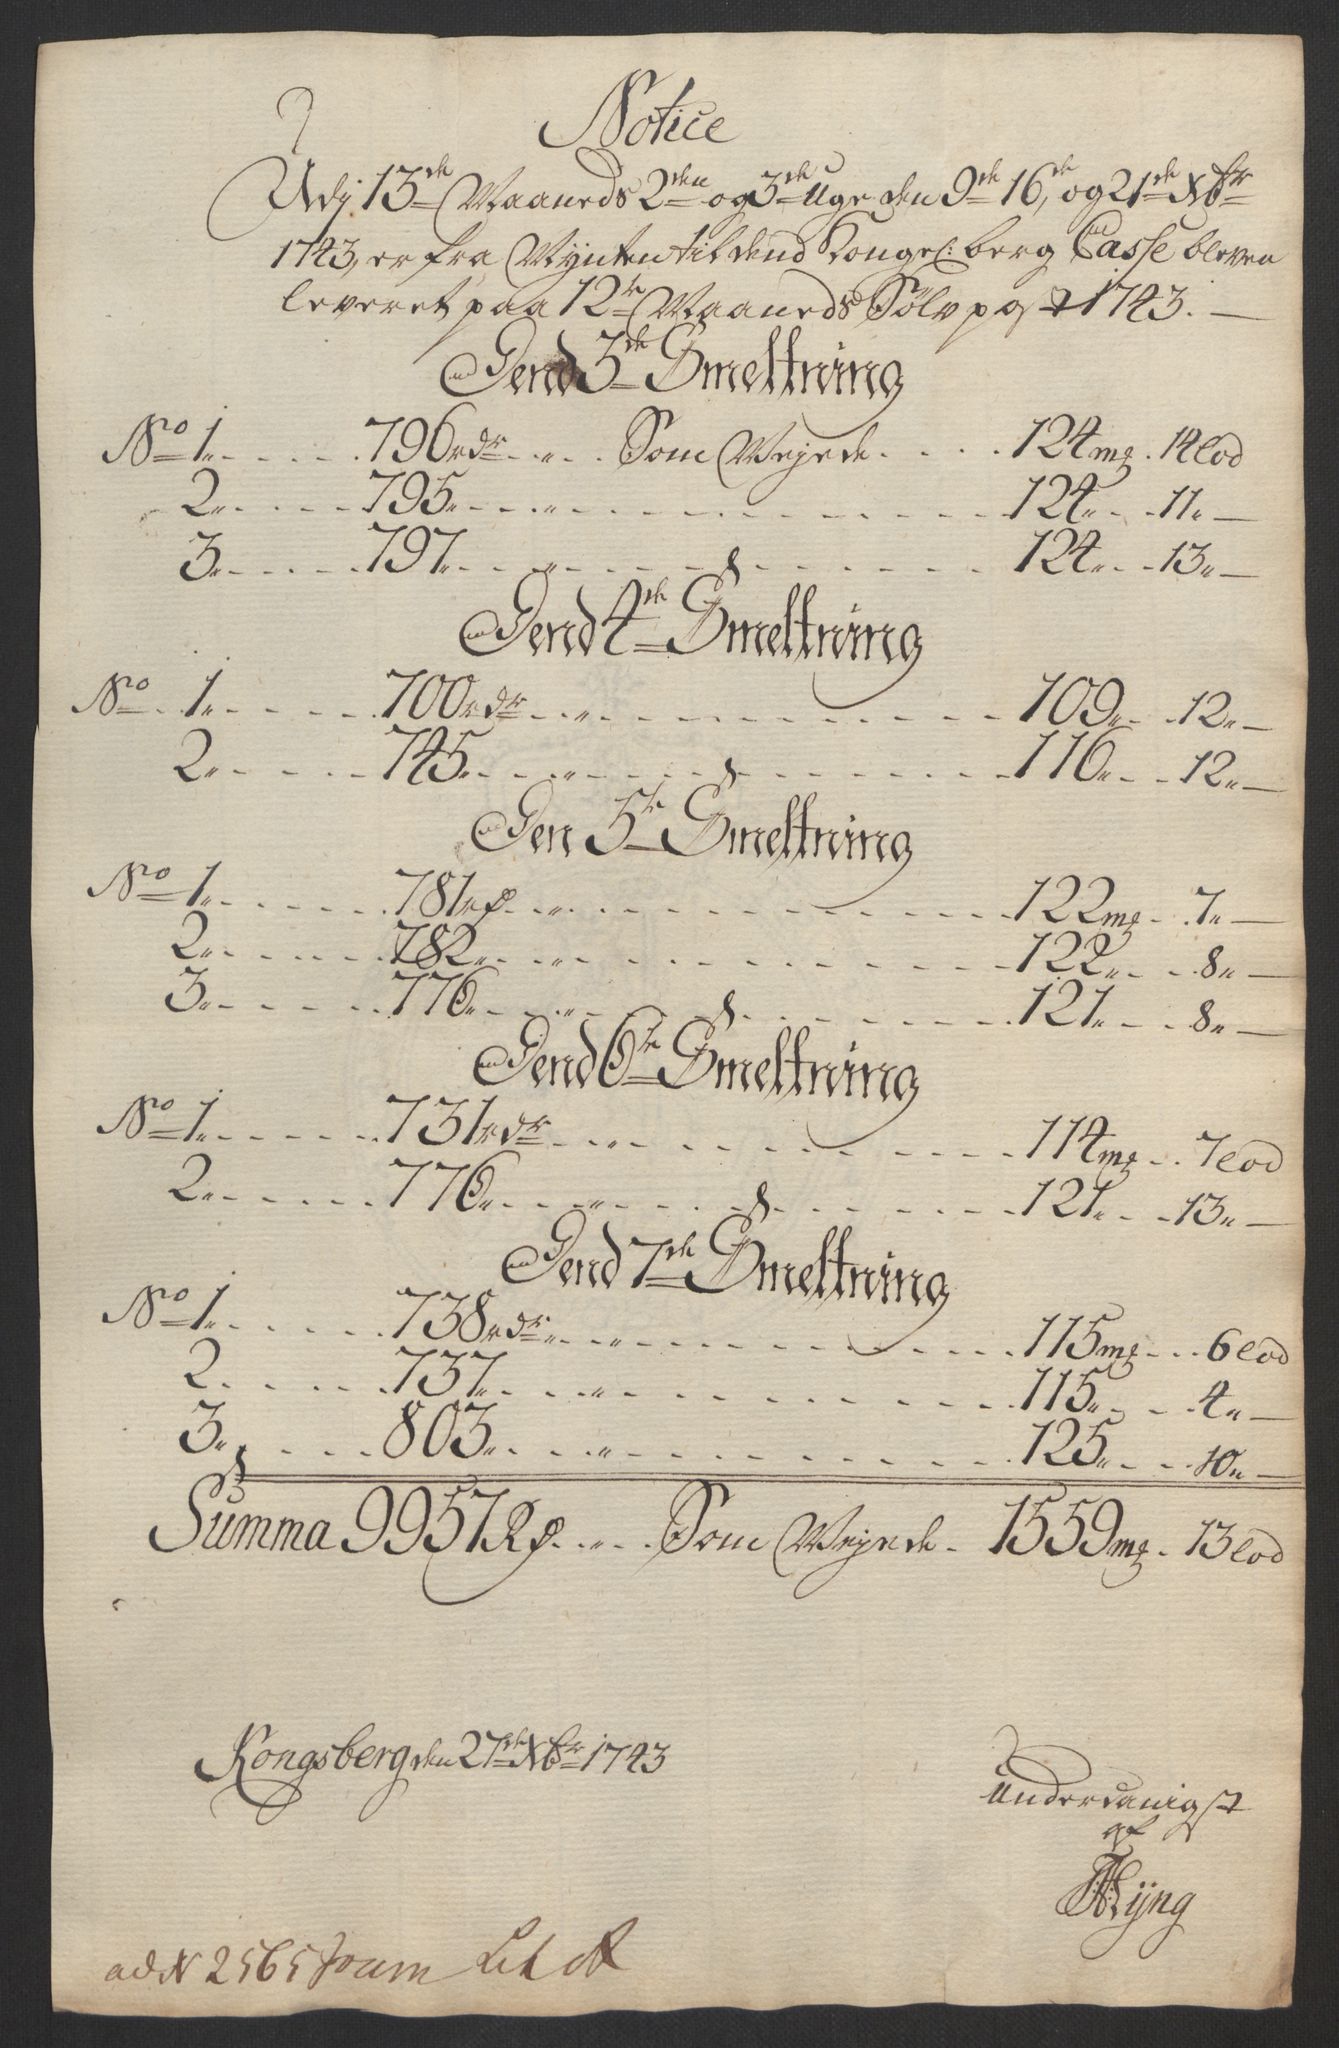 Notice
Udj 13de Maaneds 2den og 3de Uge den 9de 16de, og 21de Xbr
1743, er fra Mÿnten til dend Kongel: berg Casse bleven
leveret paa 12te Maaneds Sølvpost 1743.
Dend 3de Smeltning
No 1. 796 rdr Som Vejede 124 mg 14 Lod
2. 795 124 11
3. 797 124 13
Dend 4de Smeltning
No 1. 700 rdr 109 12
2. 745 116 12
Den 5te Smeltning
No 1. 781 122 mg 7
2. 782 122 8
3. 776 121 8
Dend 6te Smeltning
No 1. 731 rdr 114 mg 7 Lod
2. 776 121 13
Dend 7de Smeltning
No 1. 738 rdr 115 mg 6 Lod
2. 737 115 4
3. 803 125 10
Summa 9957 Som Vejede 1559 mg 13 Lod
Kongsberg den 27de Xbr 1743
Underdanigst
af
ad N 2565 Journ Lit A